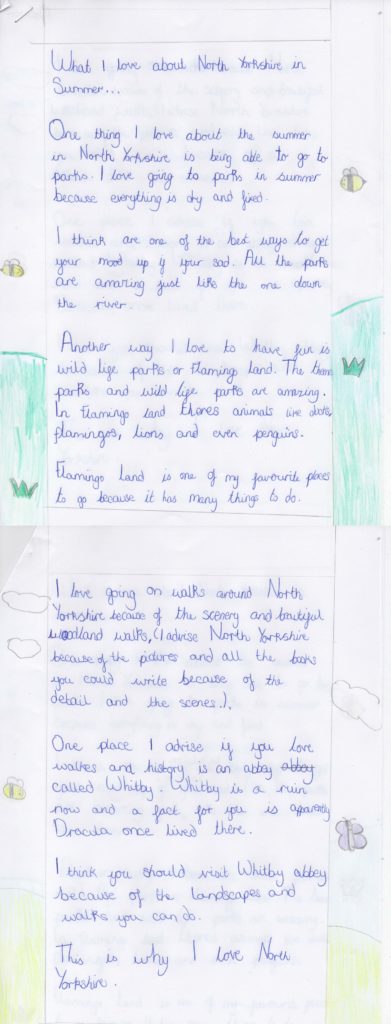 What I love about North Yorkshire in
Summer...
One thing I love about the summer
in North Yorkshire is being able to go to
parks. I love going to parks in summer
because everything is dry and fixed.
I think are one of the best ways to get
your mood up if your sad. All the parks
are amazing just like the one down
the river.
Another way I love to have fun is
wild life parks or Flamingo land. The theme
parks and wild life parks are amazing.
In Flamingo land theres animals like
flamingos, lions and even penguins.
Flamingo Land is one of my favourite places
to go because it has many things to do.
I love going on walks around North
Yorkshire because of the scenery and beautiful
woodland walks, (I advise North Yorkshire
because of the pictures and all the books
you could write because of the
detail and the scenes.).
One place I advise if you love
walkes and history is an abbey abbey
called Whitby. Whitby is a ruin
now and a fact for you is apparently
Dracula once lived there.
I think you should visit Whitby abbey
because of the landscapes and
walks you can do.
This is why I love North
Yorkshire.